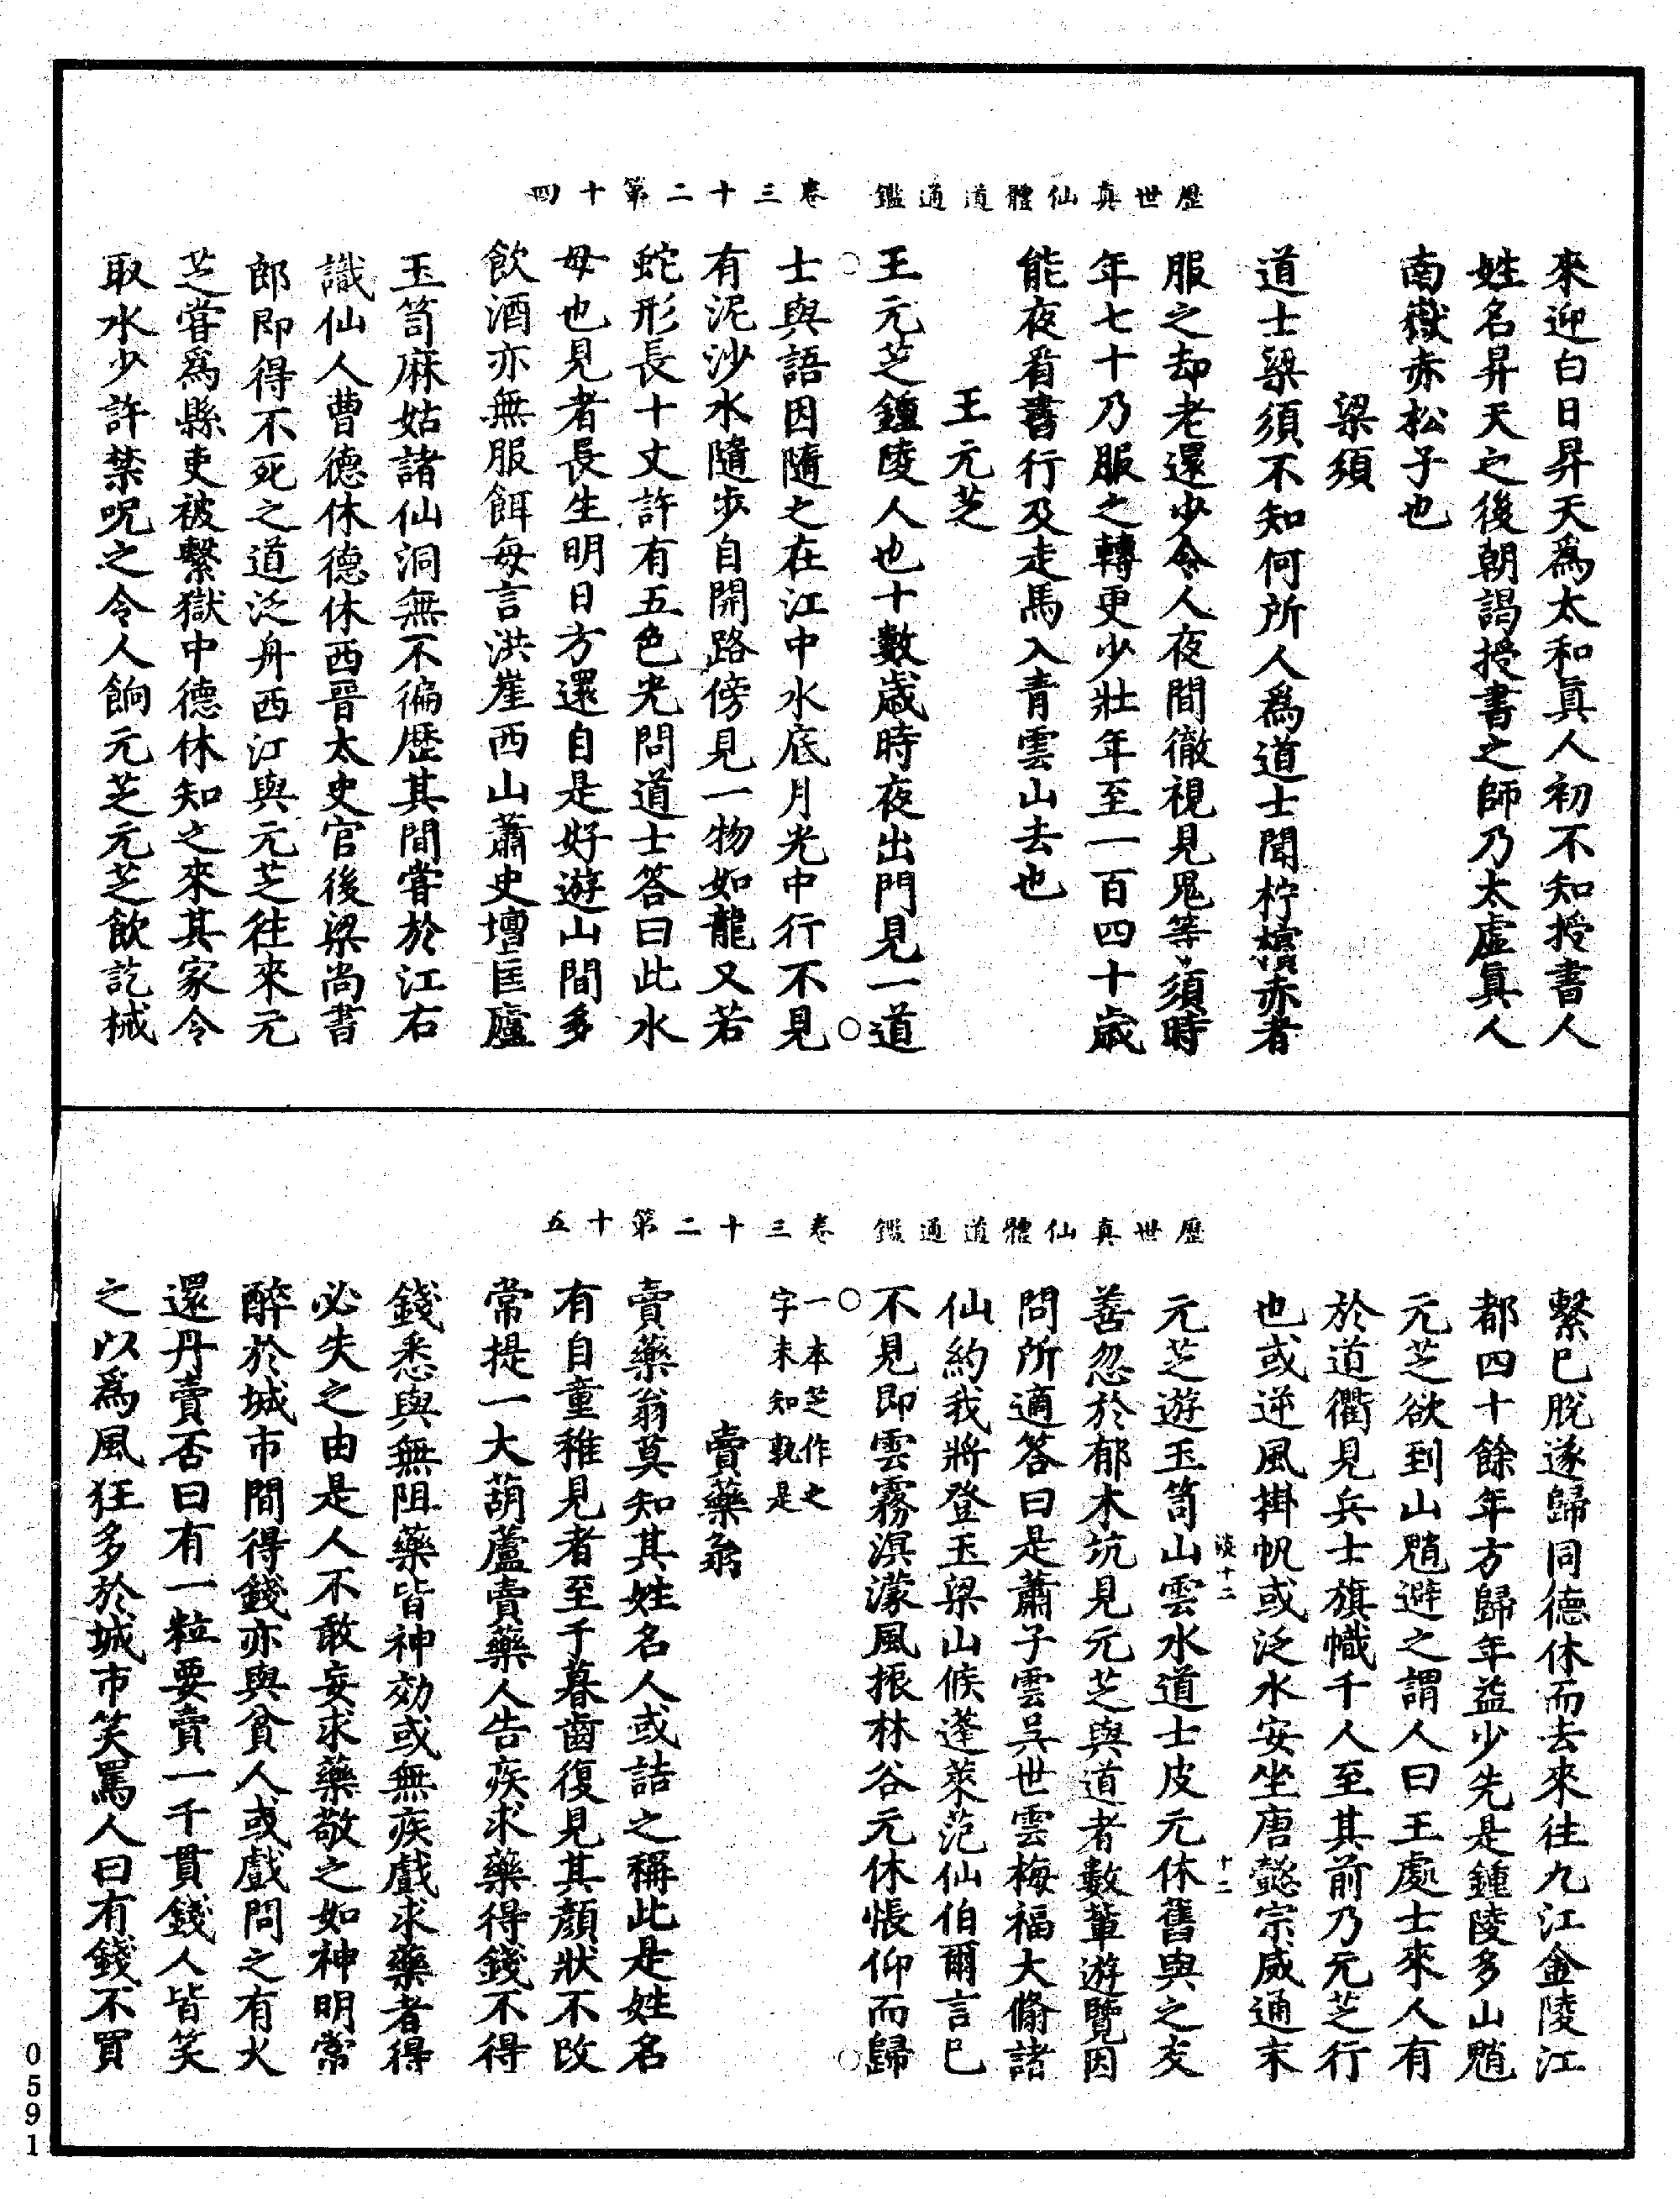 歷世真仙體道通鑑　卷三十二第十四
來迎白日昇天爲太和真人初不知授書人
姓名昇天之後朝謁授書之師乃太虛真人
南嶽赤松子也
梁須
道士梁須不知何所人爲道士聞柠檟赤者
服之却老還少令人夜間徹視見鬼等須時
年七十乃服之轉更少壯年至一百四十歲
能夜看書行及走馬入青雲山去也
王元芝
王元芝鍾陵人也十數歲時夜出門見一道
士與語因隨之在江中水底月光中行不見
有泥沙水隨步自開路傍見一物如龍又若
蛇形長十丈許有五色光問道士答曰此水
母也見者長生明日方還自是好遊山間多
飲酒亦無服餌每言洪崖西山蕭史壇匡廬
玉笥麻姑諸仙洞無不徧歷其間嘗於江右
識仙人曹德休德休西晉太史官後梁尚書
郎即得不死之道泛舟西江與元芝往來元
芝嘗爲縣吏被繫獄中德休知之來其家令
取水少許禁呪之令人餉元芝元芝飲訖械
歷世真仙體道通鑑　卷三十二第十五
繫巳脫遂歸同德休而去來往九江金陵江
都四十餘年方歸年益少先是鍾陵多山魈
元芝欲到山魈避之謂人曰王處士來人有
於道衢見兵士旗幟千人至其前乃元芝行
也或逆風掛帆或泛水安坐唐懿宗咸通末
淡十二　十二
元芝遊玉笥山雲水道士皮元休舊與之友
善忽於郁木坑見元芝與道者數輩遊覽因
問所適答曰是蕭子雲吳世雲梅福大脩諸
仙約我將登玉梁山候蓬萊范仙伯爾言巳
不見即雲霧溟濛風振林谷元休悵仰而歸
一本芝作之
字未知孰是
賣藥翁
賣藥翁莫知其姓名人或詰之稱此是姓名
有自童稚見者至于暮齒復見其顏狀不改
常提一大葫蘆賣藥人告疾求藥得錢不得
錢悉與無阻藥皆神効或無疾戲求藥者得
必失之由是人不敢妄求藥敬之如神明常
醉於城市間得錢亦與貧人或戲問之有大
還丹賣否曰有一粒要賣一千貫錢人皆笑
之以爲風狂多於城市笑罵人曰有錢不買
0591